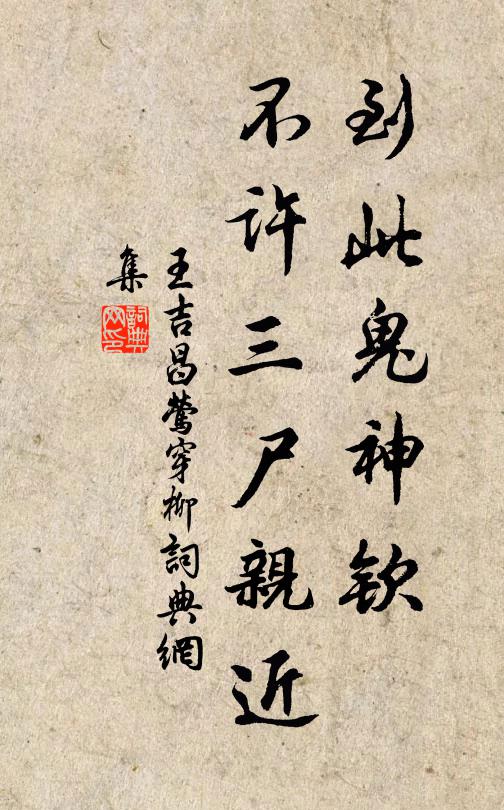 到此鬼神欽
不許三尸親近
王吉昌鶯穿柳詞典網
集
詞典网印